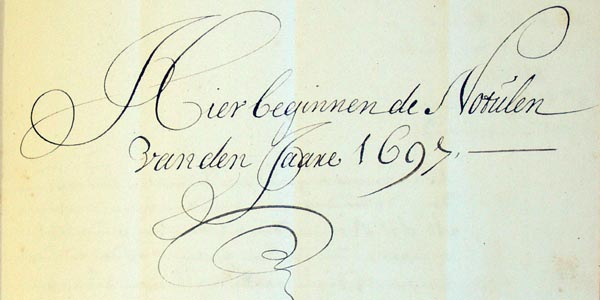 Hier beginnen de Notúlen
van den Jaare 1697.